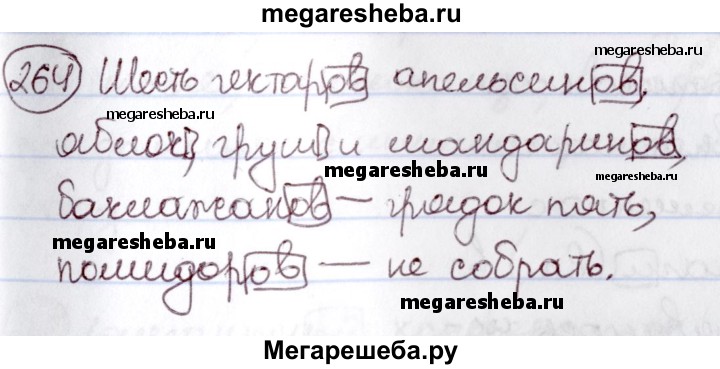 megaresheba.ru
264 Шесть гектаров апельсинов,
megaresheba.ru
megaresheba.ru
яблок, груш и мандаринов,
megaresheba.ru
megaresheba.ru
баклажанов — грядок пять,
megaresheba.ru
помидоров — не собрать.
megaresheba.ru
Мегарешеба.ру